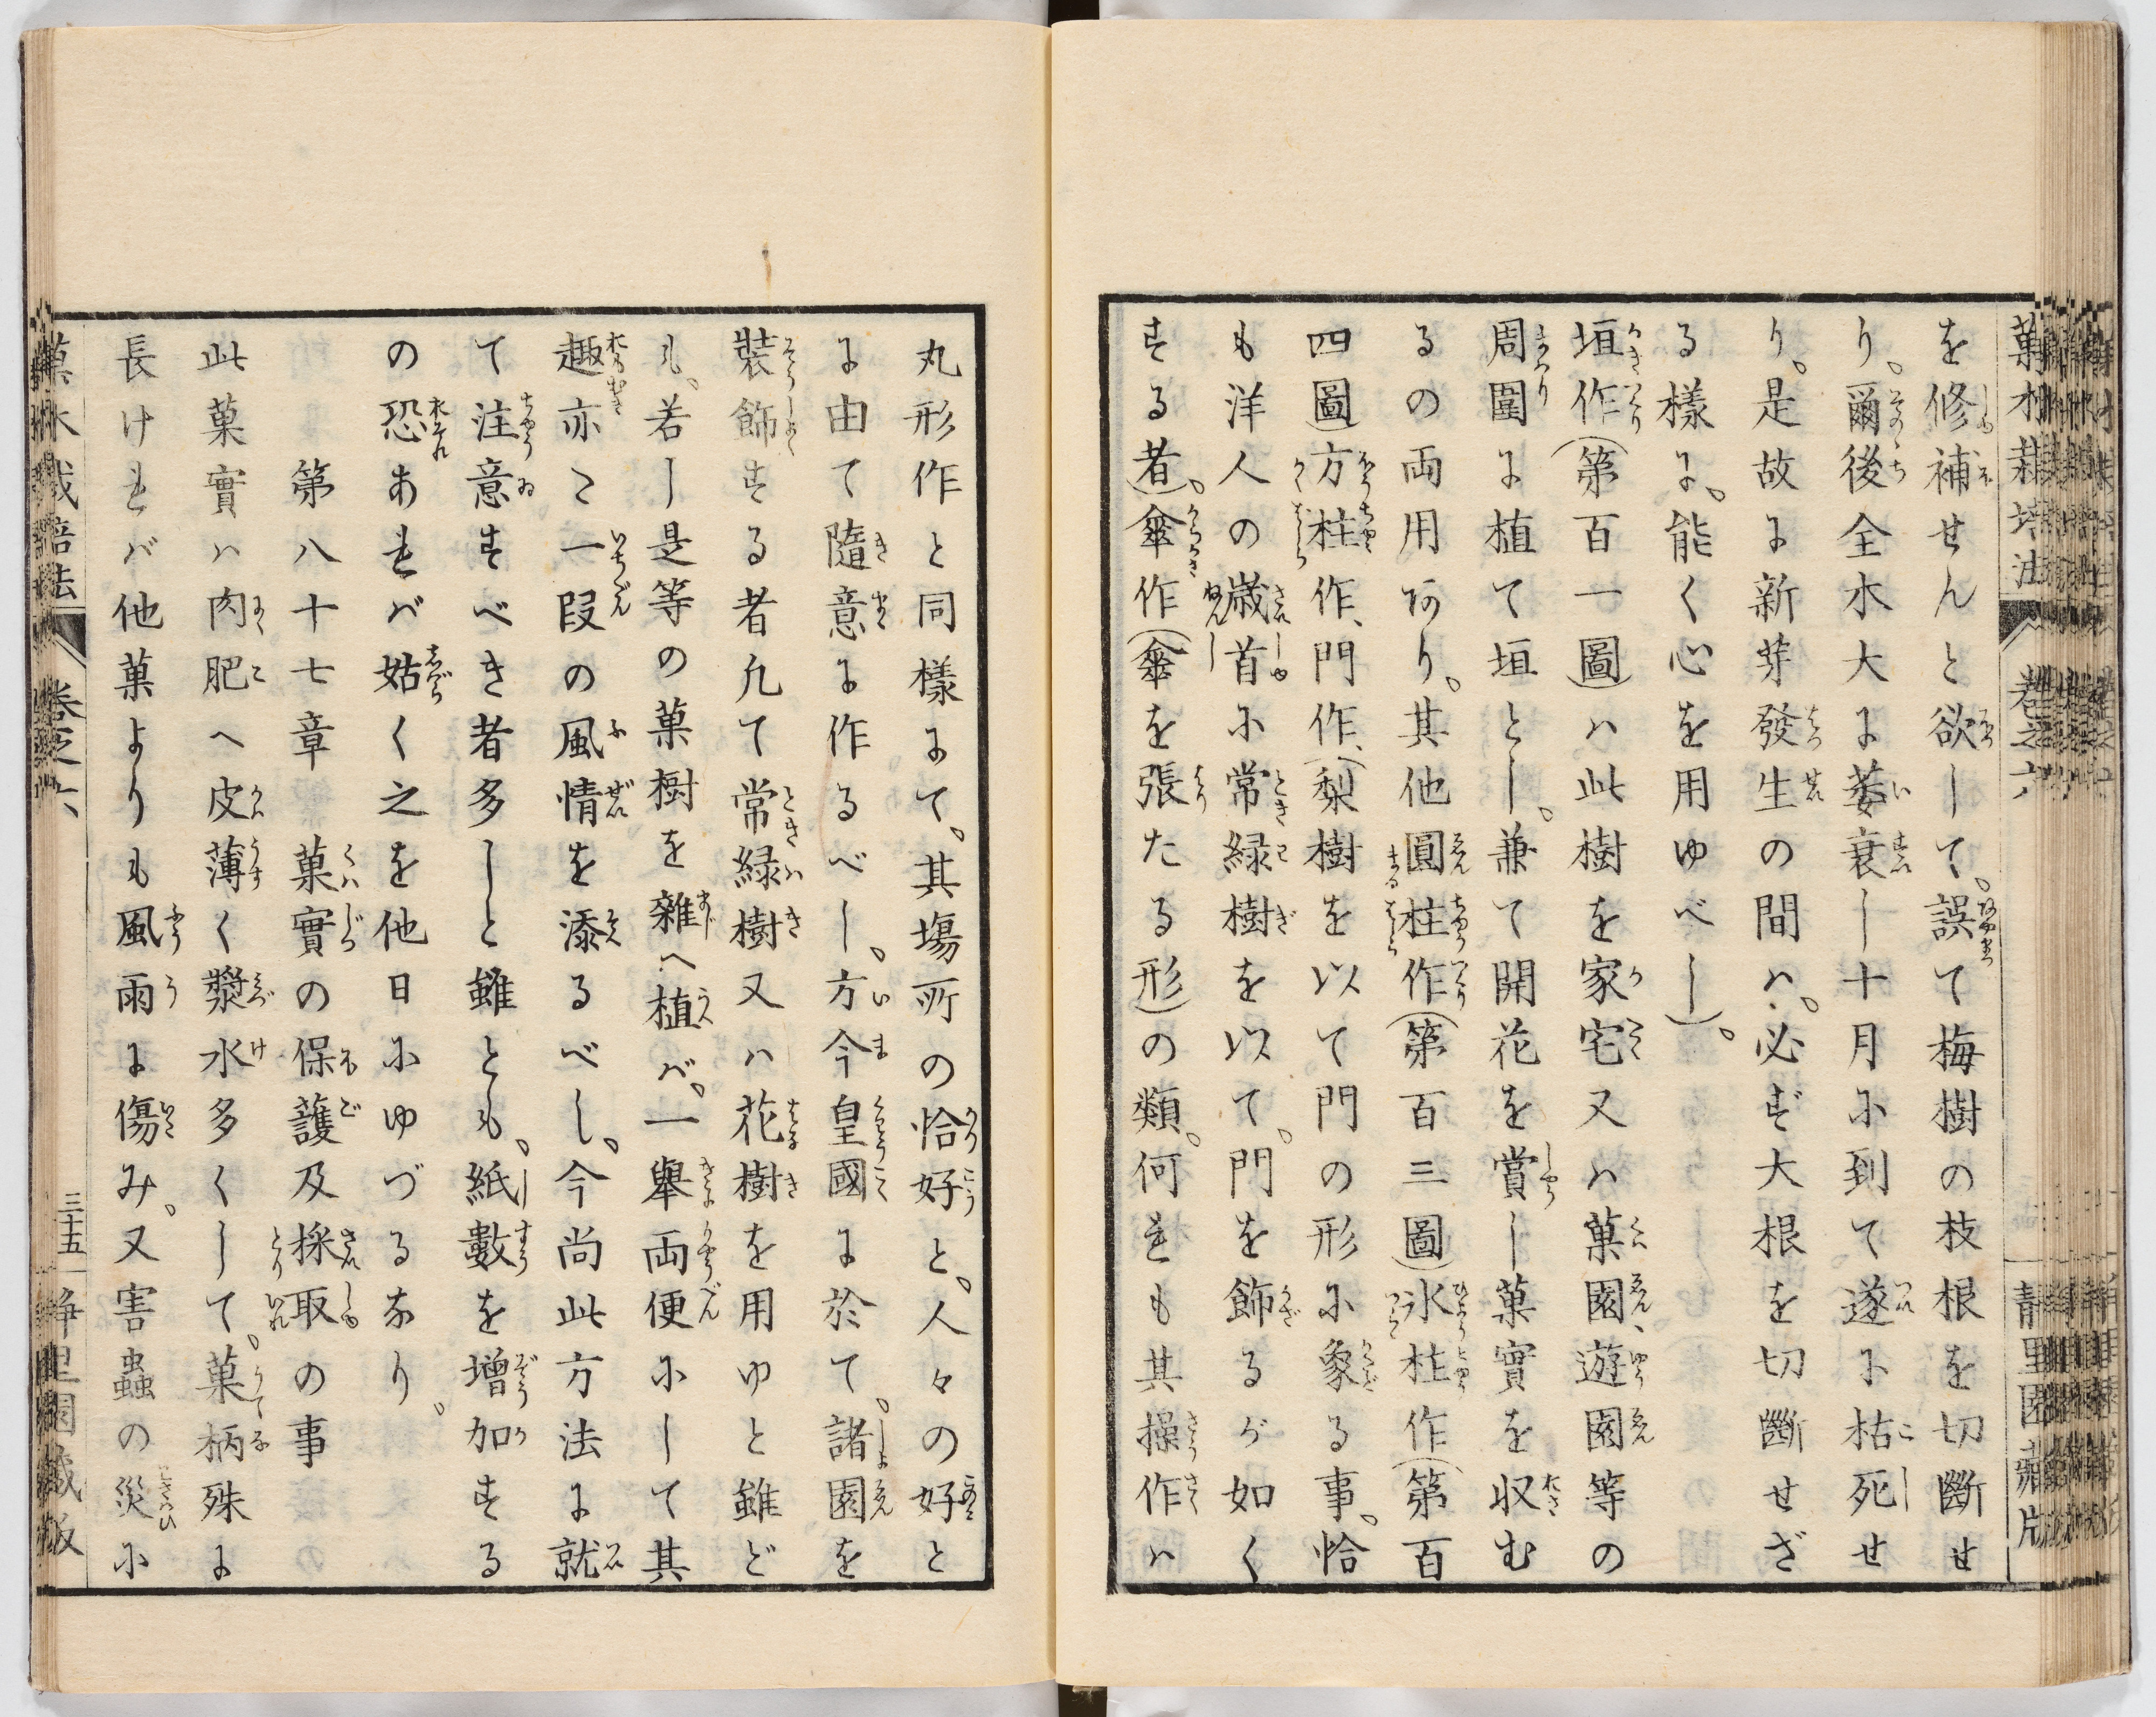 菓木栽培法 卷之六 靜里園藏版
を修補せんと欲して、誤て梅樹の枝根を切斷せ
り。爾後全木大に萎衰し十月に到て遂に枯死せ
り。是故に新芽發生の間ハ、必ず大根を切斷せざ
る樣に、能く心を用ゆべし)。
垣作(第百一圖)ハ此樹を家宅又ハ菓園、遊園等の
周圍に植て垣とし、兼て開花を賞し菓實を収む
るの両用あり。其他圓柱作(第百三圖)氷柱作(第百
四圖)方柱作、門作、(梨樹を以て門の形に象る事、恰
も洋人の歳首に常緑樹を以て、門を飾るが如く
する者)。傘作(傘を張たる形)の類。何れも其操作ハ
丸形作と同樣にて、其塲所の恰好と、人々の好と
に由て隨意に作るべし。方今皇國に於て、諸園を
裝飾する者凢て常緑樹又ハ花樹を用ゆと雖ど
も、若し是等の菓樹を雜へ植バ、一舉両便にして其
趣亦た一段の風情を添るべし。今尚此方法に就
て注意すべき者多しと雖とも、紙數を増加する
の恐あれバ姑く之を他日にゆづるなり。
第八十七章 菓實の保護及採取の事
此菓實ハ肉肥へ皮薄く漿水多くして、菓柄殊に
長けれバ他菓よりも風雨に傷み。又害蟲の災に
菓木栽培法 卷之六 三十五 靜里園藏版